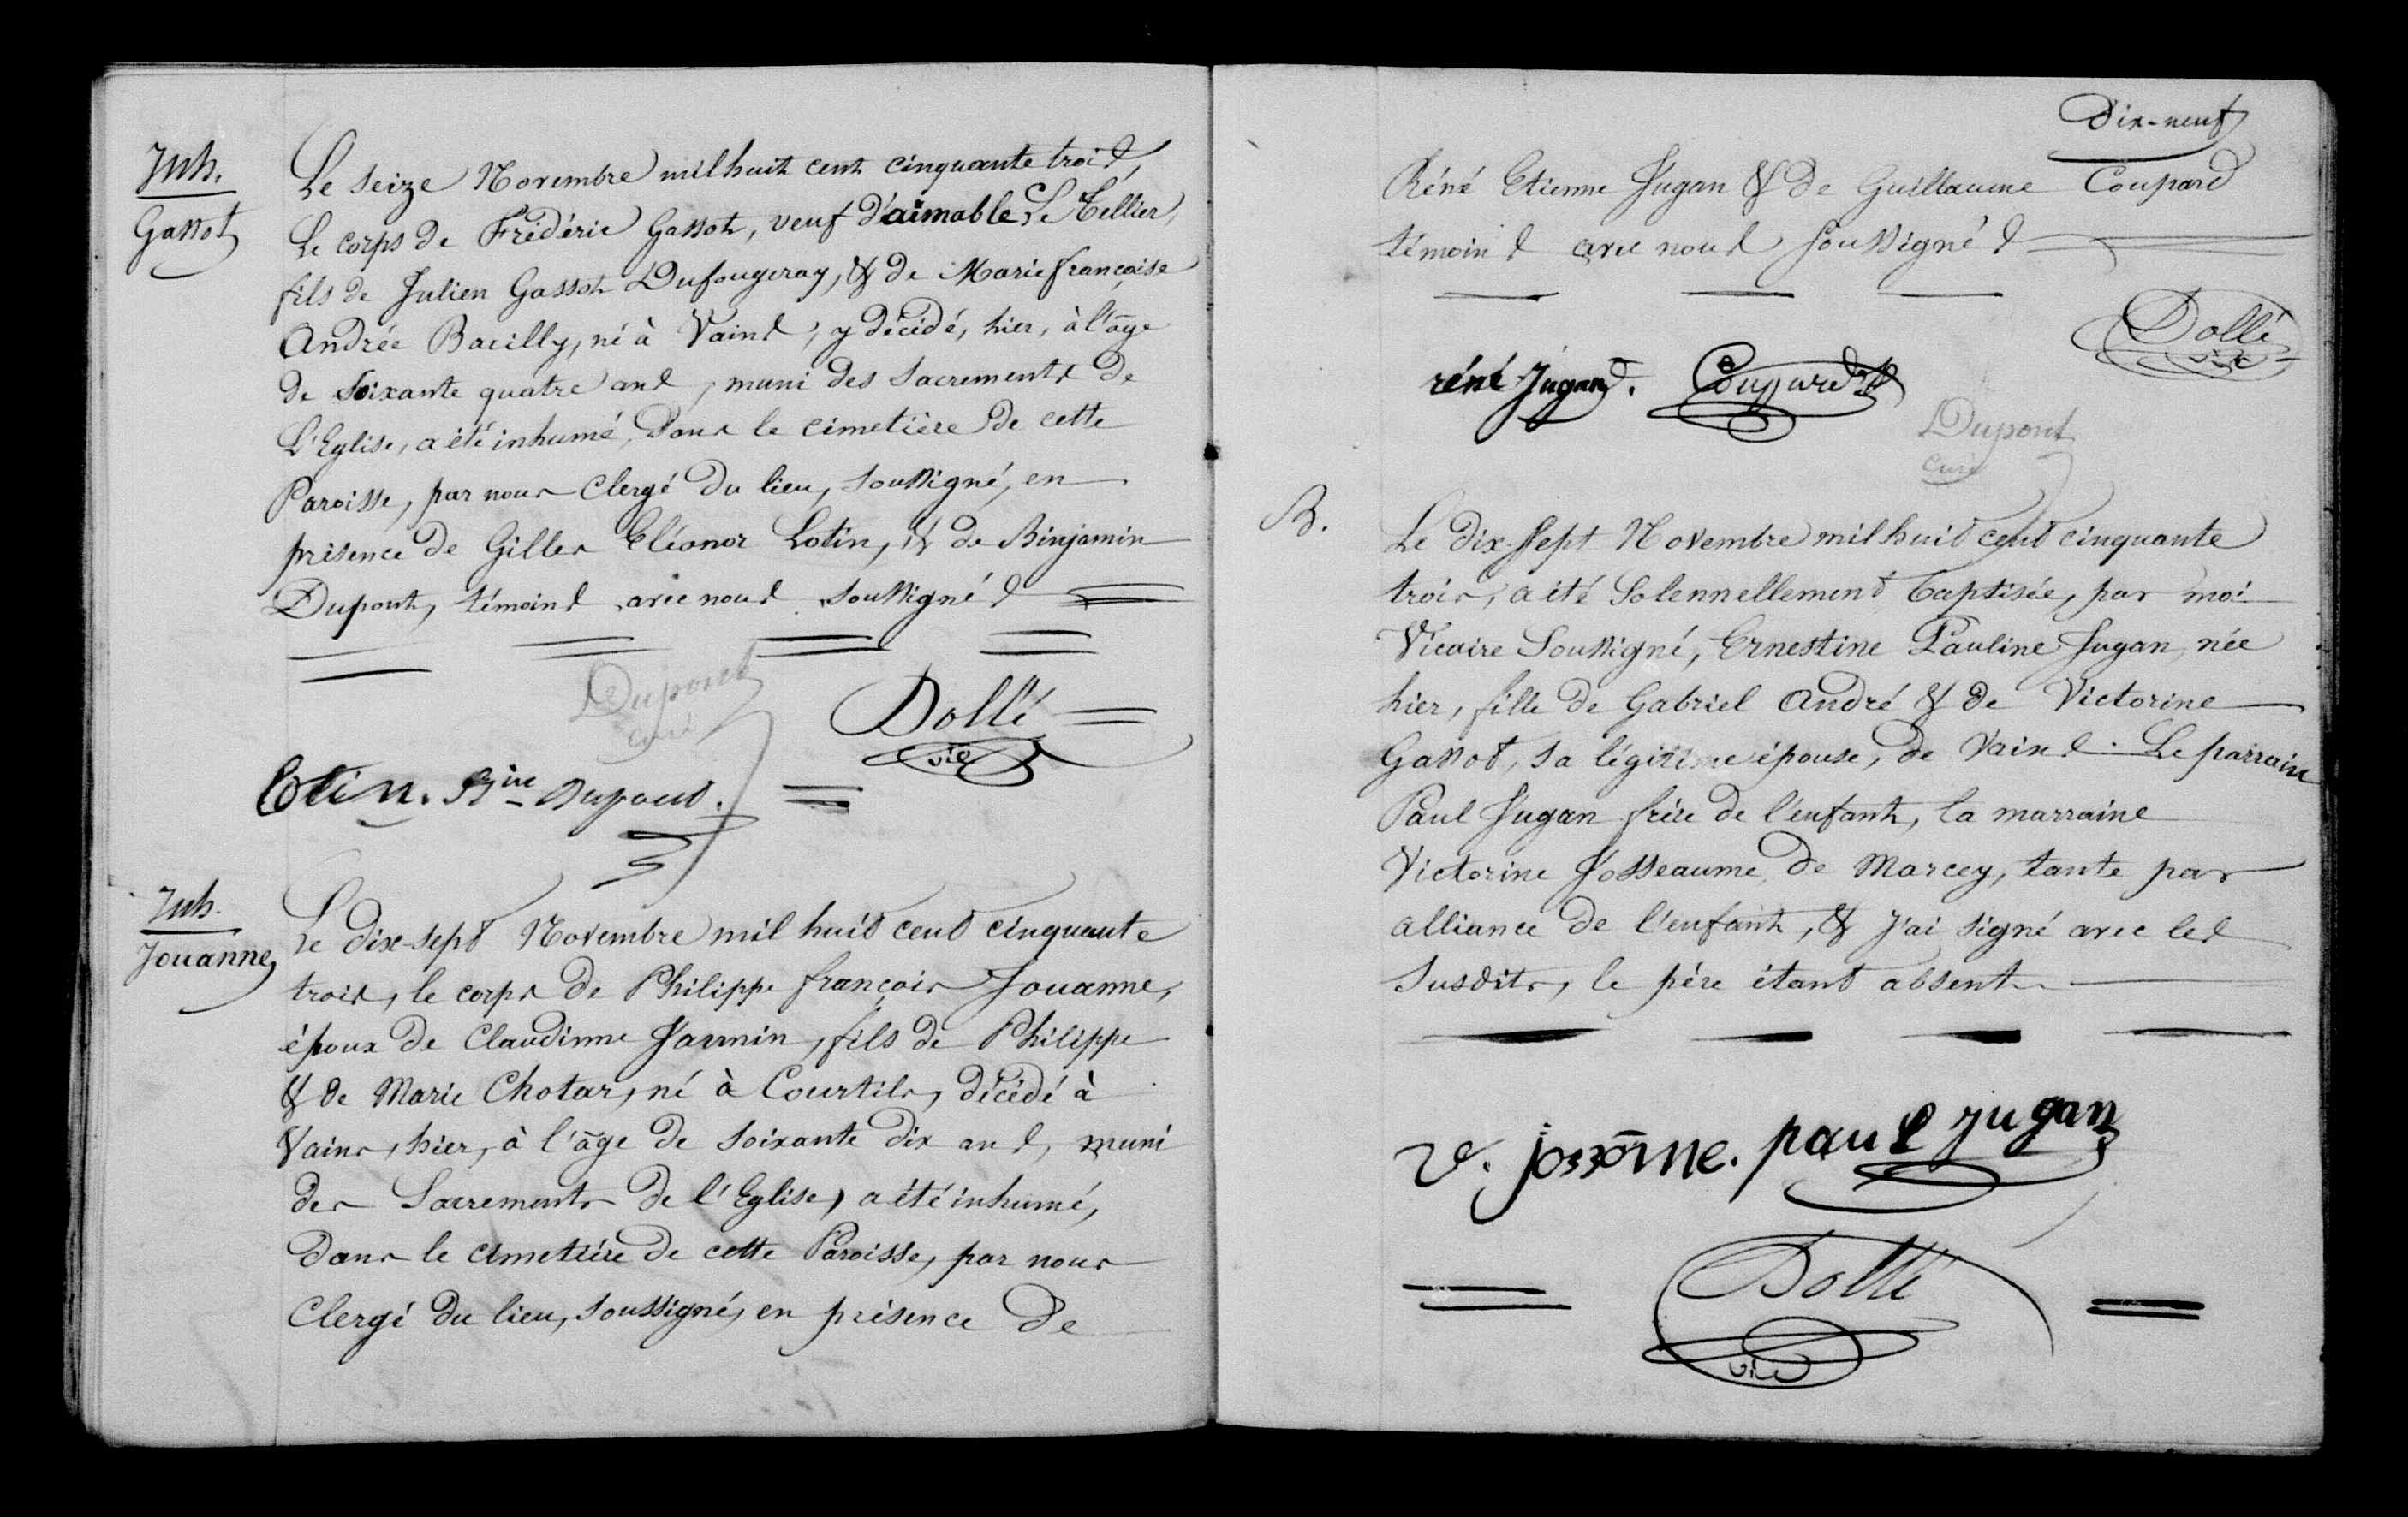 Inh.
Gassot
Le seize Novembre mil huit cent cinquante trois,
Le corps de Frédéric Gassot, veuf d'aimable Le Tellier,
fils de Julien Gassot Dufougeray, & de Marie françoise
Andrée Bacilly, né à Vains, y décédé, hier, à l'âge
de Soixante quatre ans, muni des Sacrements de
L'Eglise, a été inhumé, Dans le cimetière de cette
Paroisse, par nous Clergé du lieu, soussigné, en
présence de Gilles Eléonor Lotin, & de Binjamin
Dupont, témoins avec nous soussignés
Dupont
curé
Dollé
vic
Lotin. Bin Dupont.
Inh.
Jouanne
Le dix-sept Novembre mil huit cent cinquante
trois, le corps de Philippe françois Jouanne,
époux de Claudinne Jasmin, fils de Philippe
& de Marie Chotar, né à Courtils, décédé à
Vains, hier, à l'âge de soixante dix ans, muni
des Sacrements de l'Eglise, a été inhumé,
dans le cimetière de cette Paroisse, par nous
Clergé du lieu, soussigné, en présence de
Dix-neuf
Réné Etienne Jugan & de Guillaume Coupard
témoins avec nous soussignés
Dollé
vic
réné Jugan. Coupard
Dupont
curé
B.
Le dix sept Novembre mil huit cent cinquante
trois, a été Solennellement baptisée, par moi
Vicaire Soussigné, Ernestine Pauline Jugan, née
hier, fille de Gabriel André & de Victorine
Gassot, sa légitime épouse, de Vains. Le parrain
Paul Jugan frère de l'enfant, la marraine
Victorine Josseaume, de Marcey, tante par
alliance de l'enfant, & j'ai signé avec les
susdits, le père étant absent
v. jossōme. paul jugan
Dollé
vic